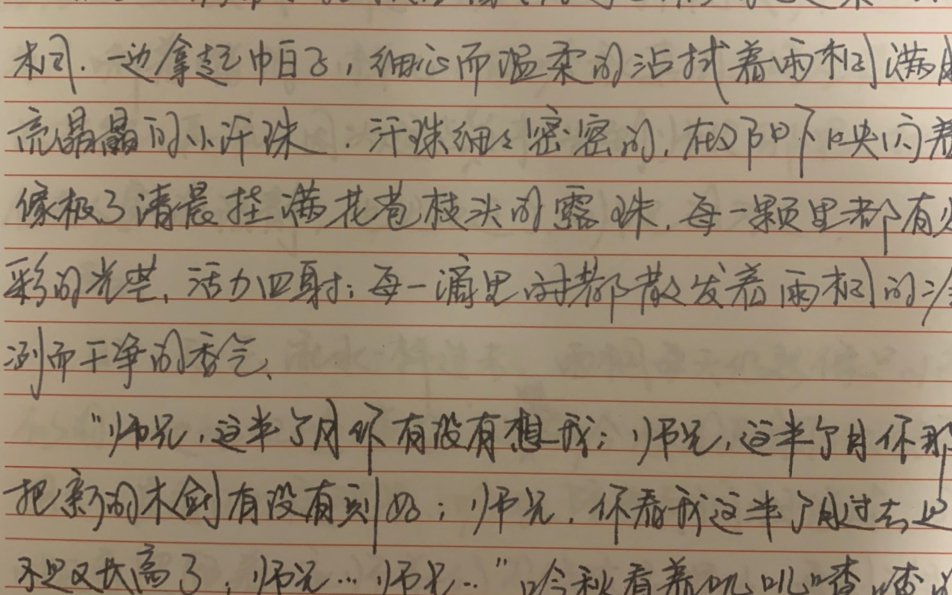 桐。一边拿起帕子，细心而温柔的沾拭着雨桐满
亮晶晶的小汗珠。汗珠细细密密的，在阳下映闪着
像极了清晨挂满花苞枝头的露珠，每一颗里都有
彩的光芒，活力四射；每一滴里都散发着雨桐的
冽而干净的香气。
“师兄，这半个月你有没有想我；师兄，这半个月你那
把新的木剑有没有刻好；师兄，你看我这半个月过去
不是又长高了，师兄…师兄…”吟秋看着叽叽喳喳